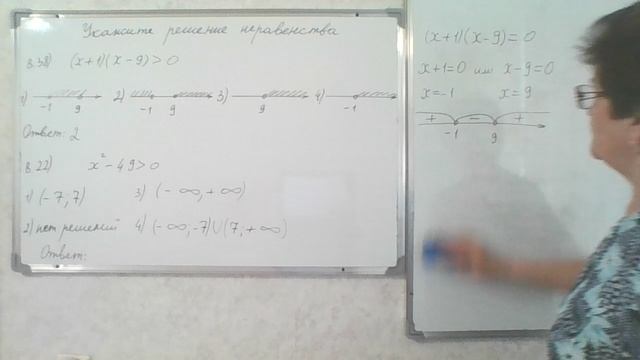 Укажите решение неравенства
в.38) (x+1)(x-9)>0
1) -1 9 2) -1 9 3) 9 4) -1
Ответ: 2
в.22) x²-49>0
1) (-7,7) 3) (-∞,+∞)
2) нет решений 4) (-∞,-7)∪(7,+∞)
Ответ:
(x+1)(x-9)=0
x+1=0 или x-9=0
x=-1 x=9
+ - +
-1 9